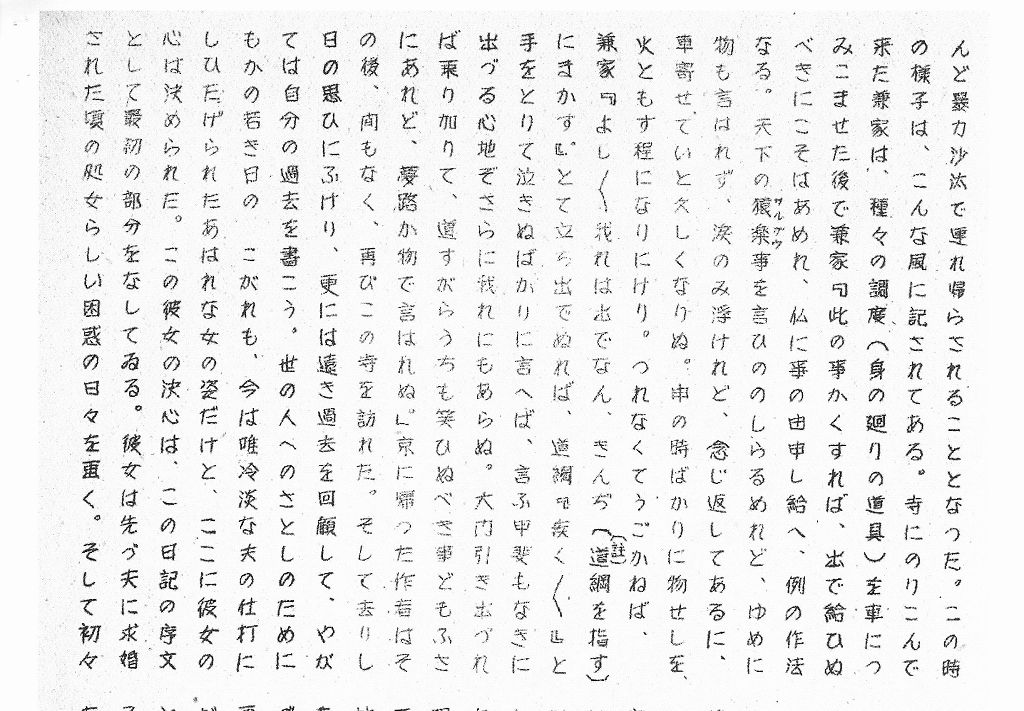 んど暴力沙汰で連れ帰らされることとなつた。この時
の様子は、こんな風に記されてある。寺にのりこんで
来た兼家は、種々の調度(身の廻りの道具)を車につ
みこませた後で兼家『此の事かくすれば、出で給ひぬ
べきにこそはあめれ、仏に事の由申し給へ、例の作法
なる。天下の猿楽事を言ひののしらるめれど、ゆめに
サルガウ
物も言はれず、涙のみ浮けれど、念じ返してあるに、
車寄せていと久しくなりぬ。申の時ばかりに物せしを、
火ともす程になりにけり。つれなくてうごかねば、
兼家『よし〱我れは出でなん、きんぢ(道綱を指す)
(註)
にまかす』。とて立ち出でぬれば、道綱『疾く〱』と
手をとりて泣きぬばかりに言へば、言ふ甲斐もなきに
出づる心地ぞさらに我れにもあらぬ。大門引き出づれ
ば乗り加りて、道すがらうちも笑ひぬべき事どもふさ
にあれど、夢路か物で言はれぬ』。京に帰つた作者はそ
の後、間もなく、再びこの寺を訪れた。そして去りし
日の思ひにふけり、更には遠き過去を回顧して、やが
ては自分の過去を書こう。世の人へのさとしのために
もかの若き日の こがれも、今は唯冷淡な夫の仕打に
しひたげられたあはれな女の姿だけと、ここに彼女の
心は決められた。この彼女の決心は、この日記の序文
として最初の部分をなしてゐる。彼女は先づ夫に求婚
された頃の処女らしい困惑の日々を画く。そして初々